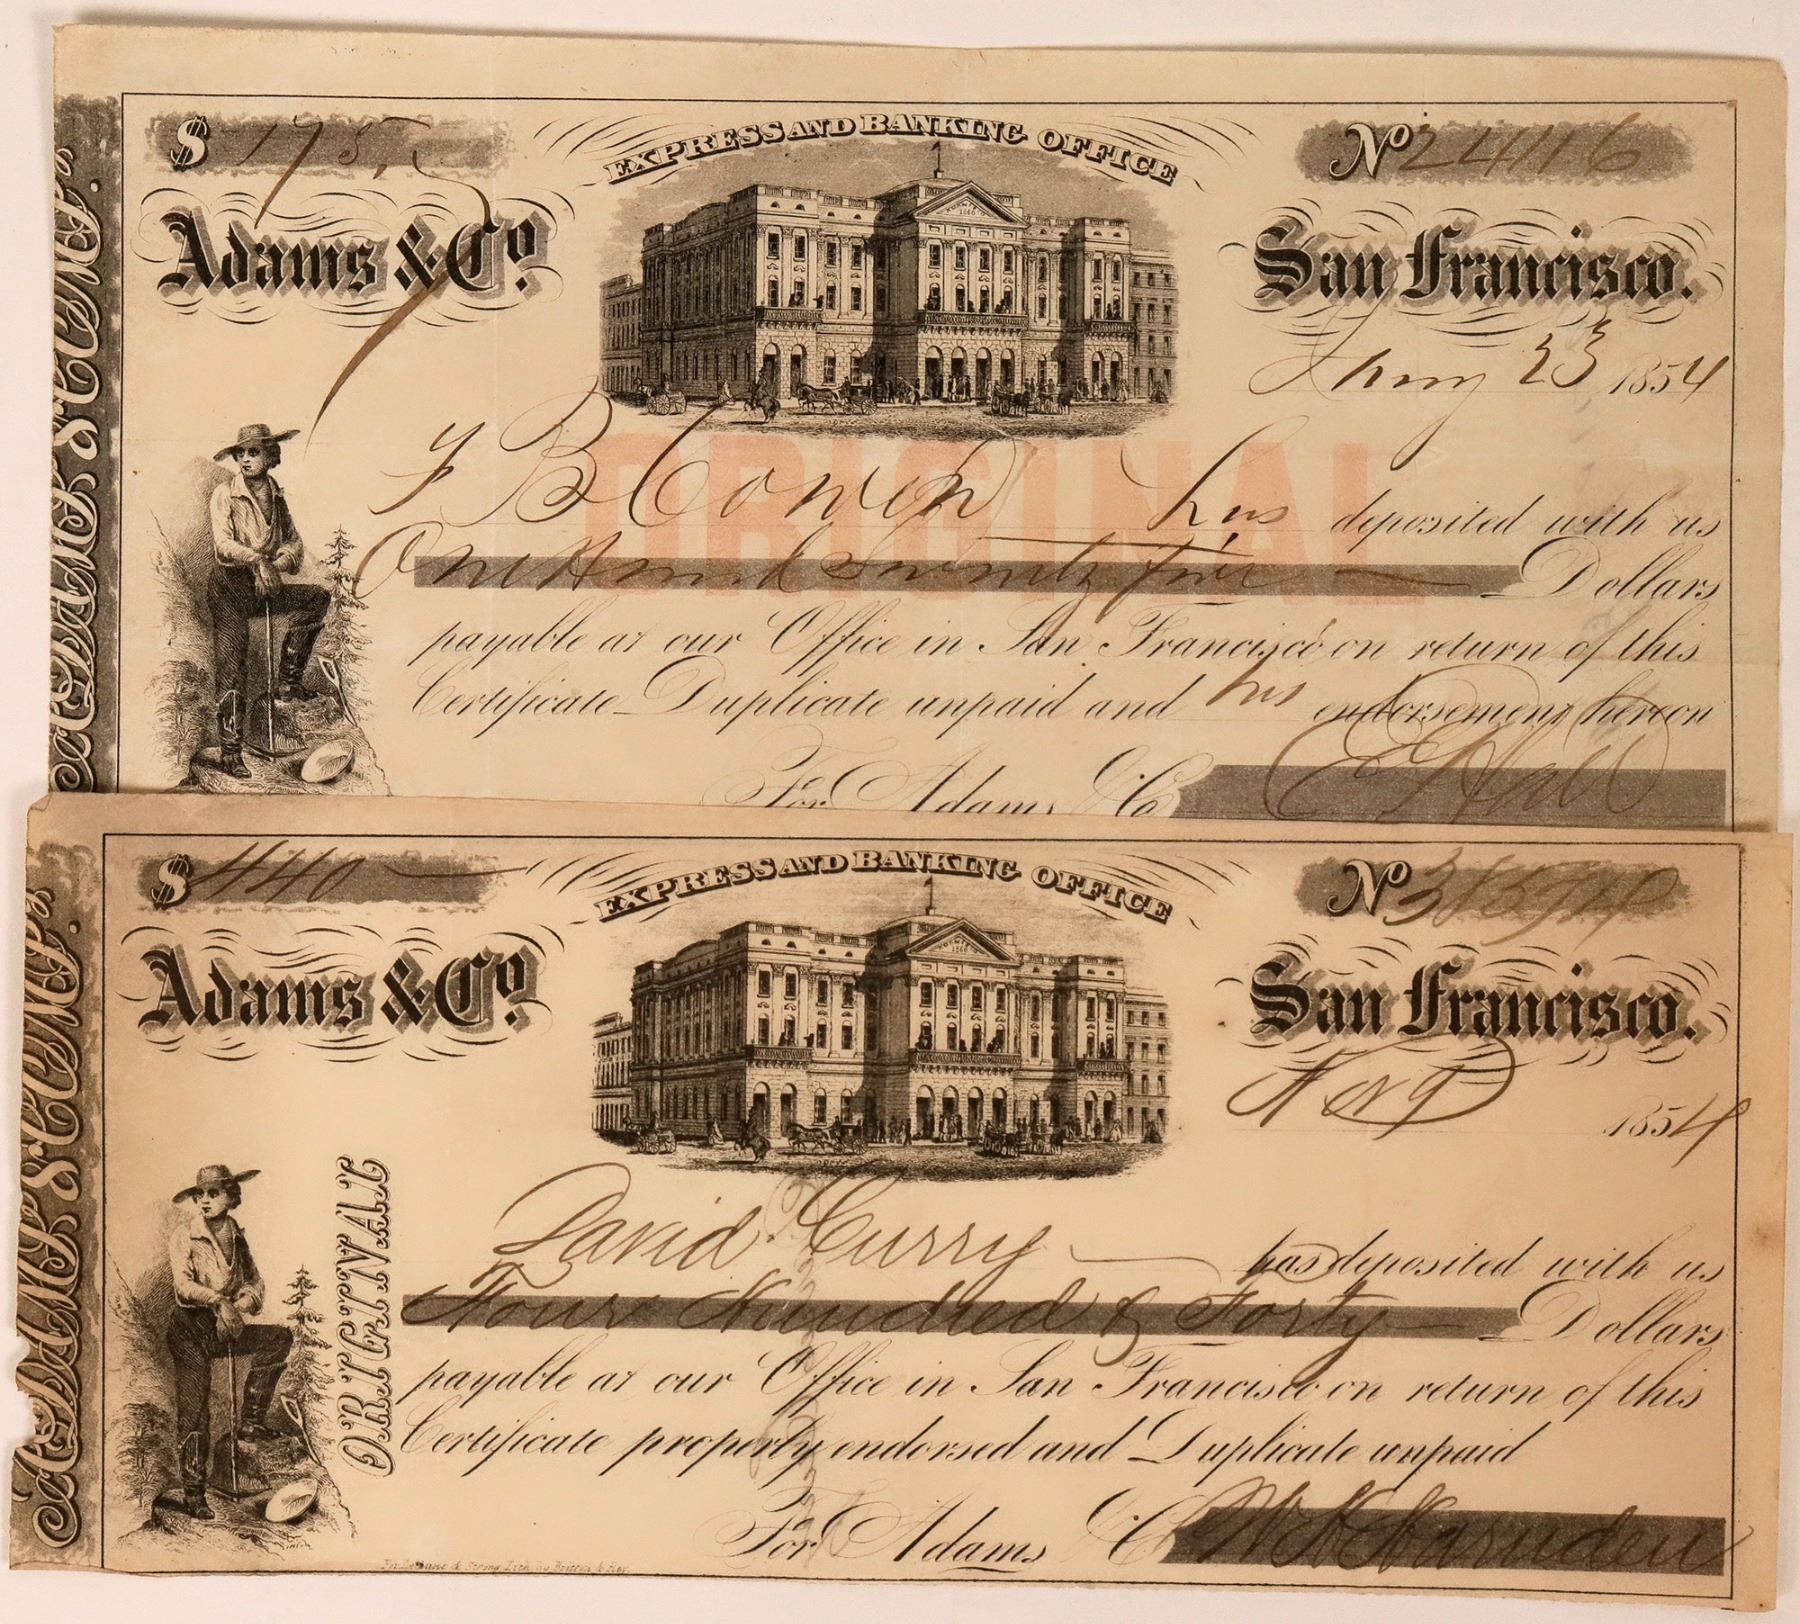 ADAMS & COMP'Y.
$ 175.
EXPRESS AND BANKING OFFICE
No 24116
Adams & Co.
San Francisco.
23 1854
ORIGINAL
F B Cowen has deposited with us
One Hund Seventy five Dollars
payable at our Office in San Francisco on return of this
Certificate Duplicate unpaid and his endorsement hereon
For Adams & Co
ADAMS & COMP'Y.
$ 440
EXPRESS AND BANKING OFFICE
No
Adams & Co.
San Francisco.
Nov 9 1854
ORIGINAL
David Curry has deposited with us
Four Hundred & Forty Dollars
payable at our Office in San Francisco on return of this
Certificate properly endorsed and Duplicate unpaid
For Adams & C
Lith. by Britton & Rey.